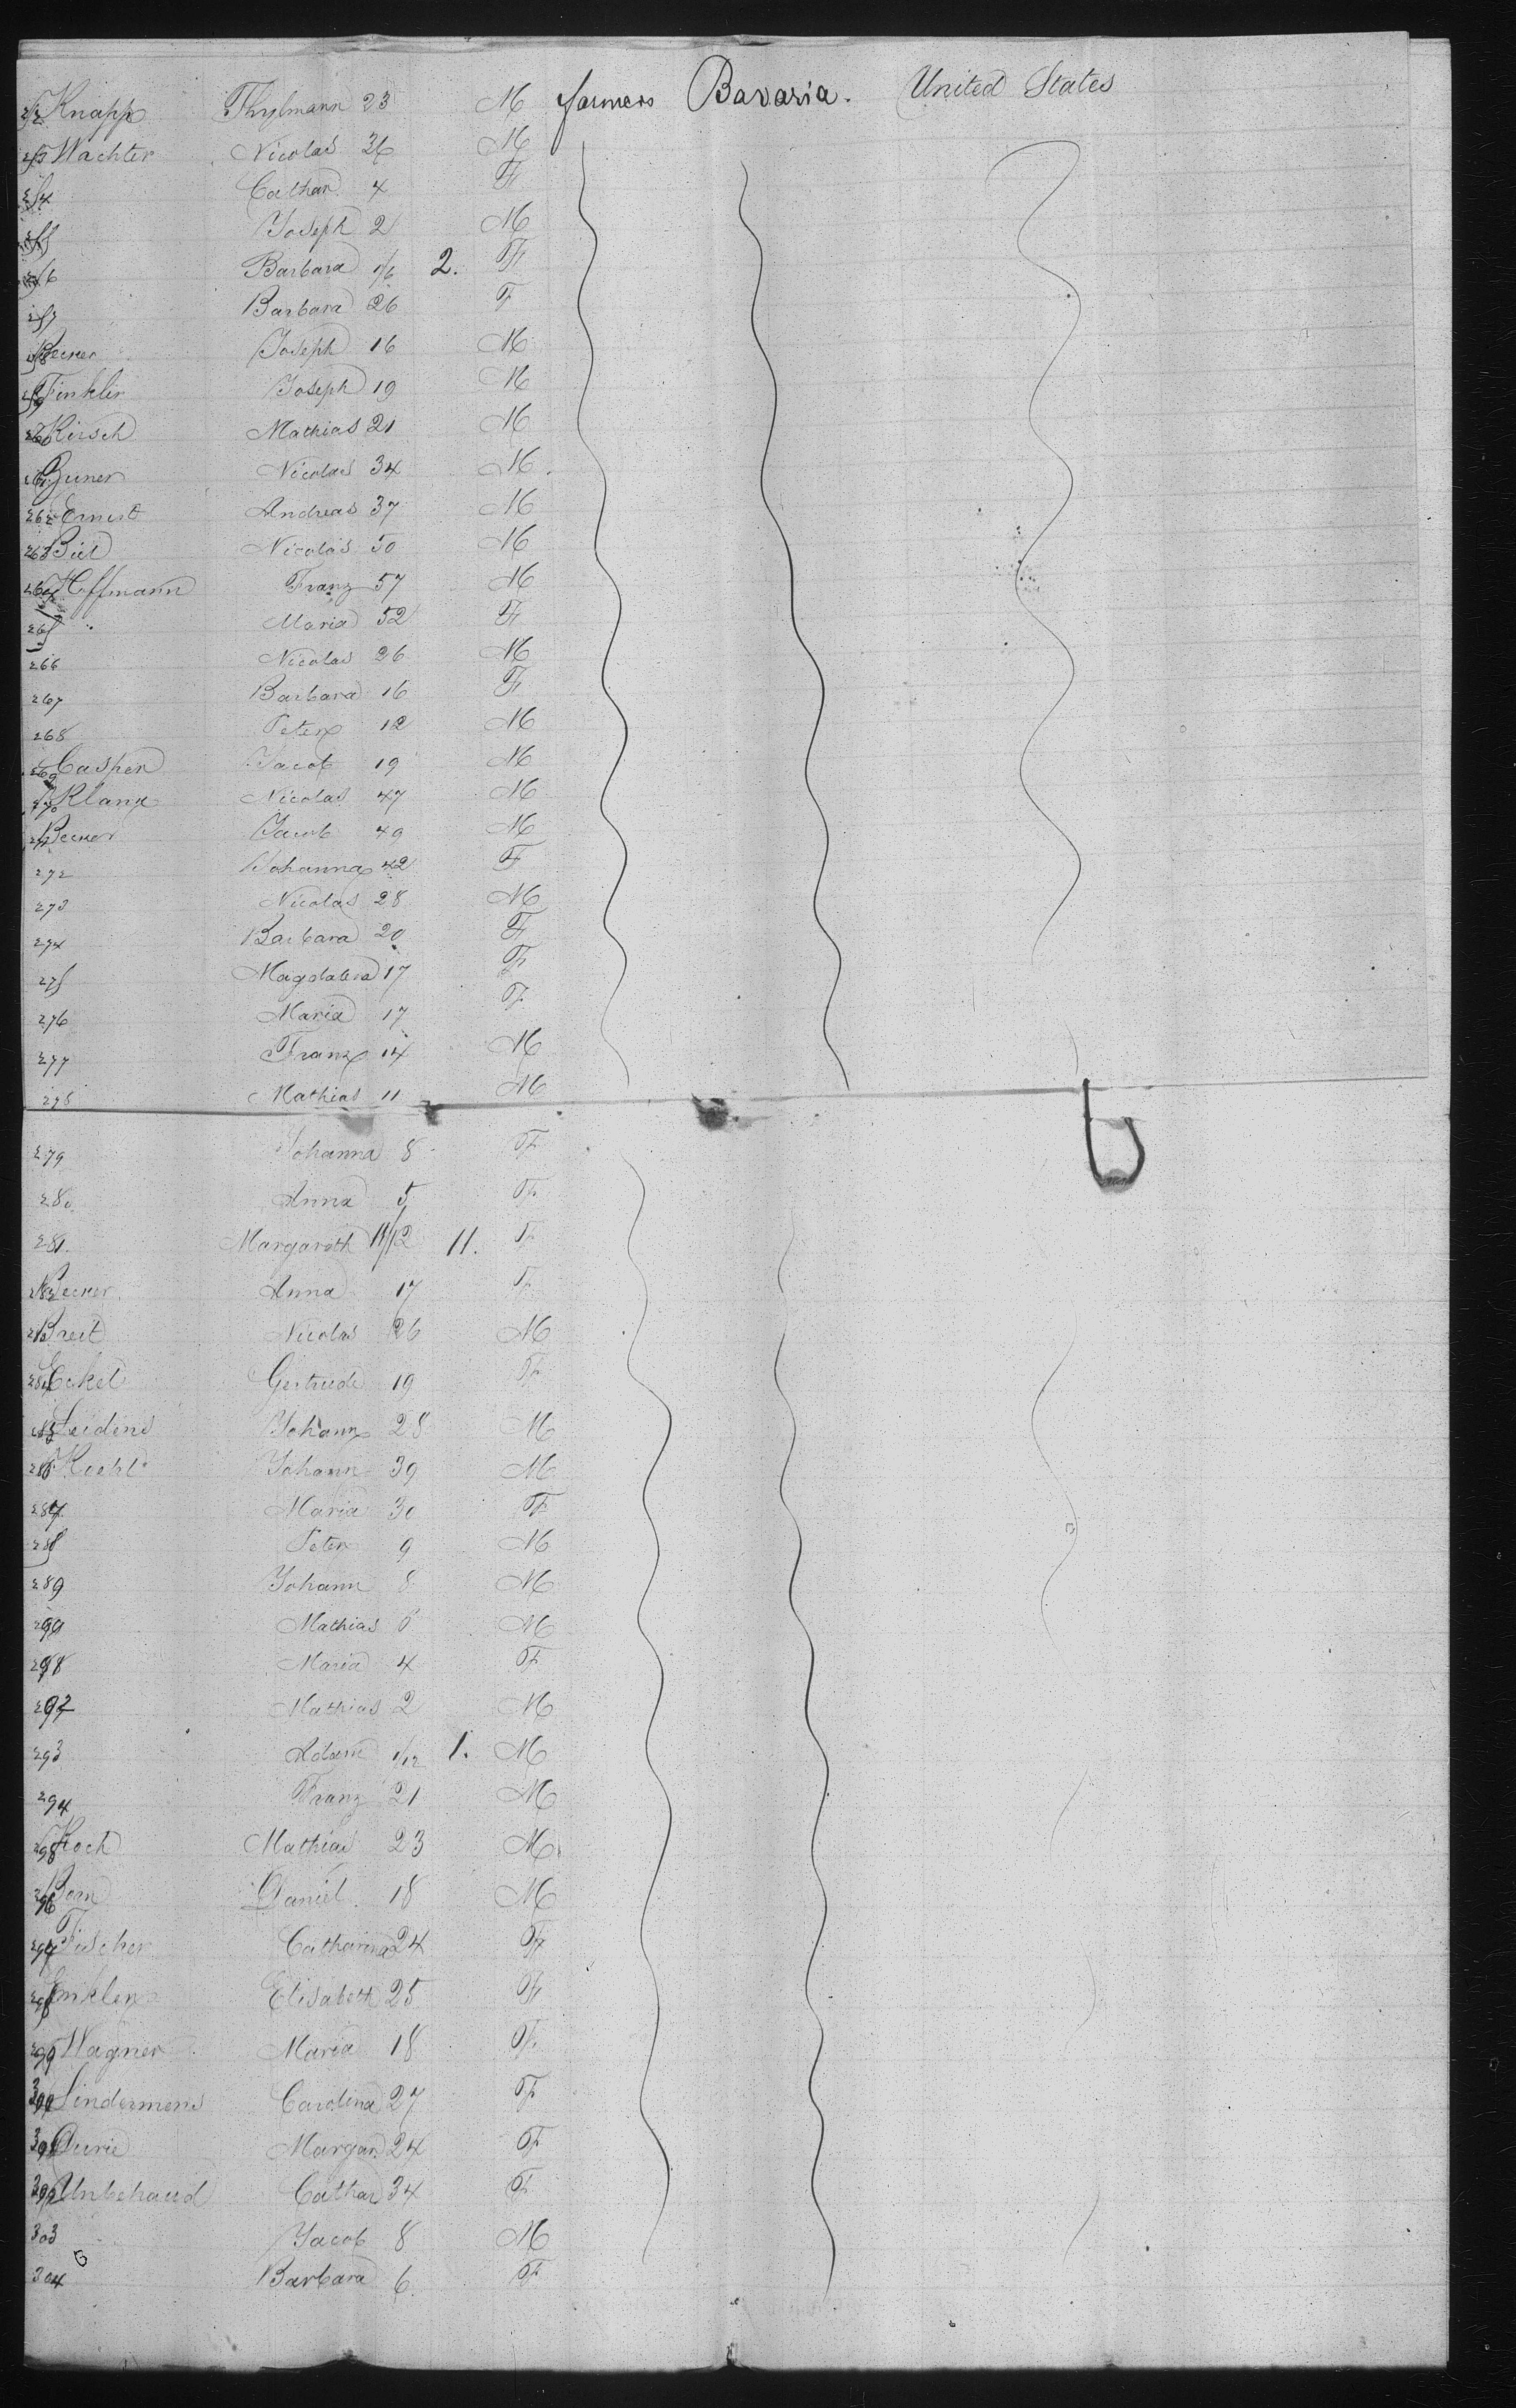 252 Knapp Thylmann 23 M farmers Bavaria. United States
253 Wachter Nicolas 36 M
254 Cathar. 4 F
255 Joseph 2 M
256 Barbara 1/6 2. F
257 Barbara 26 F
258 Joseph 16 M
259 Finkler Joseph 19 M
260 Kirsch Mathias 21 M
261 Nicolas 34 M
262 Ernest Andreas 37 M
263 Nicolas 50 M
264 Hffmann Franz 57 M
265 Maria 52 F
266 Nicolas 26 M
267 Barbara 16 F
268 Peter 12 M
269 Casper Jacob 19 M
270 Klanx Nicolas 47 M
271 Jacob 49 M
272 Johanna 42 F
273 Nicolas 28 M
274 Barbara 20 F
275 Magdalena 17 F
276 Maria 17 F
277 Franz 14 M
278 Mathias 11 M
279 Johanna 8 F
280 Anna 5 F
281. Margareth 11/12 11. F
282 Anna 17 F
283 Breit Nicolas 26 M
284 Eckel Gertrude 19 F
285 Johann 28 M
286 Johann 39 M
287 Maria 30 F
288 Peter 9 M
289 Johann 8 M
290 Mathias 6 M
291 Maria 4 F
292 Mathias 2 M
293 Adam 1/12 1. M
294 Franz 21 M
295 Koch Mathias 23 M
296 Born Daniel 18 M
297 Fischer Catharina 24 F
298 Elisabeth 25 F
299 Wagner Maria 18 F
300 Carolina 27 F
301 Durie Margar. 24 F
302 Cathar 34 F
303 Jacob 8 M
304 Barbara 6. F